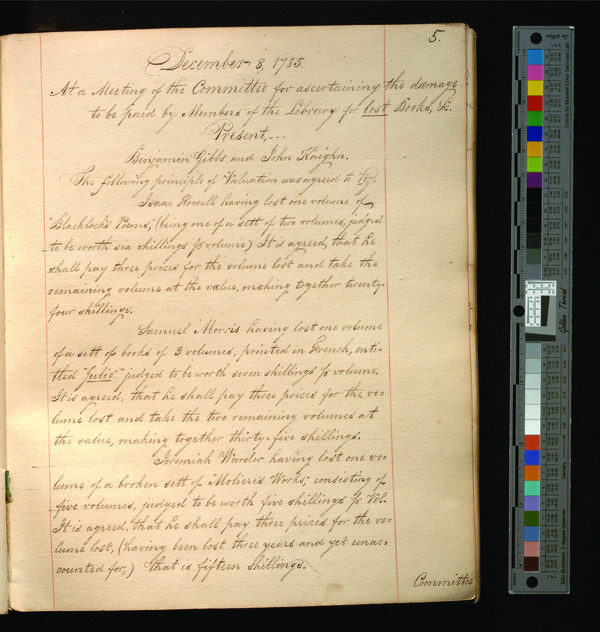 5.
December 8, 1785.
At a Meeting of the Committee for ascertaining the damage
to be paid by Members of the Library for lost Books, &c.
Present,...
Benjamin Gibbs and John Kaighn.
The following principle of Valuation was agreed to Vizt.
Isaac Howell having lost one volume of
Blacklock's Poems, (being one of a sett of two volumes, judged
to be worth six shillings pr volume) It is agreed, that he
shall pay three prices for the volume lost and take the
remaining volume at the value, making together twenty-
four shillings.
Samuel Morris having lost one volume
of a sett of books of 3 volumes, printed in French, enti-
tled "Julie." judged to be worth seven shillings pr volume.
It is agreed, that he shall pay three prices for the vo-
lume lost and take the two remaining volumes at
the value, making together thirty-five shillings.
Jeremiah Warder having lost one vo-
lume of a broken sett of "Molieris Works," consisting of
five volumes, judged to be worth five shillings pr Vol.
It is agreed, that he shall pay three prices for the vo-
lume lost, (having been lost three years and yet unac-
counted for,) that is fifteen shillings.
Committee
Golden Thread